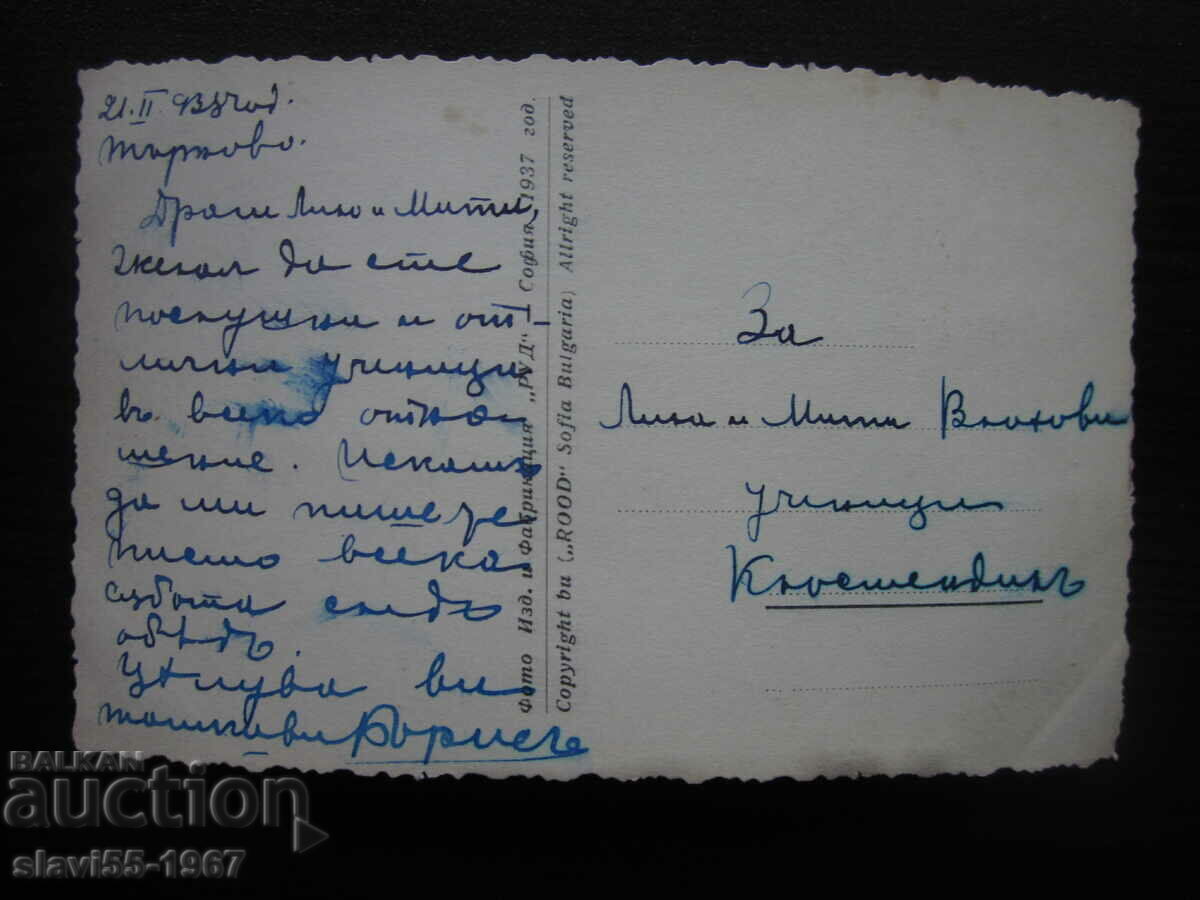 21.II.
Търново.
Драги Лило и Мити,
Желая да сте
послушни и от-
лични ученици
въ всяко отно-
шение. Искамъ
да ми пишете
писмо всяка
събота следъ
обѣдъ.
Цѣлува ви
Борисъ
Фото Изд. и Фабрикация „РУД" — София, 1937 год.
Copyright bu („ROOD" Sofia Bulgaria) Allright reserved
За
и Мити
ученици
Кюстендилъ
BALKAN
auction
slavi55-1967